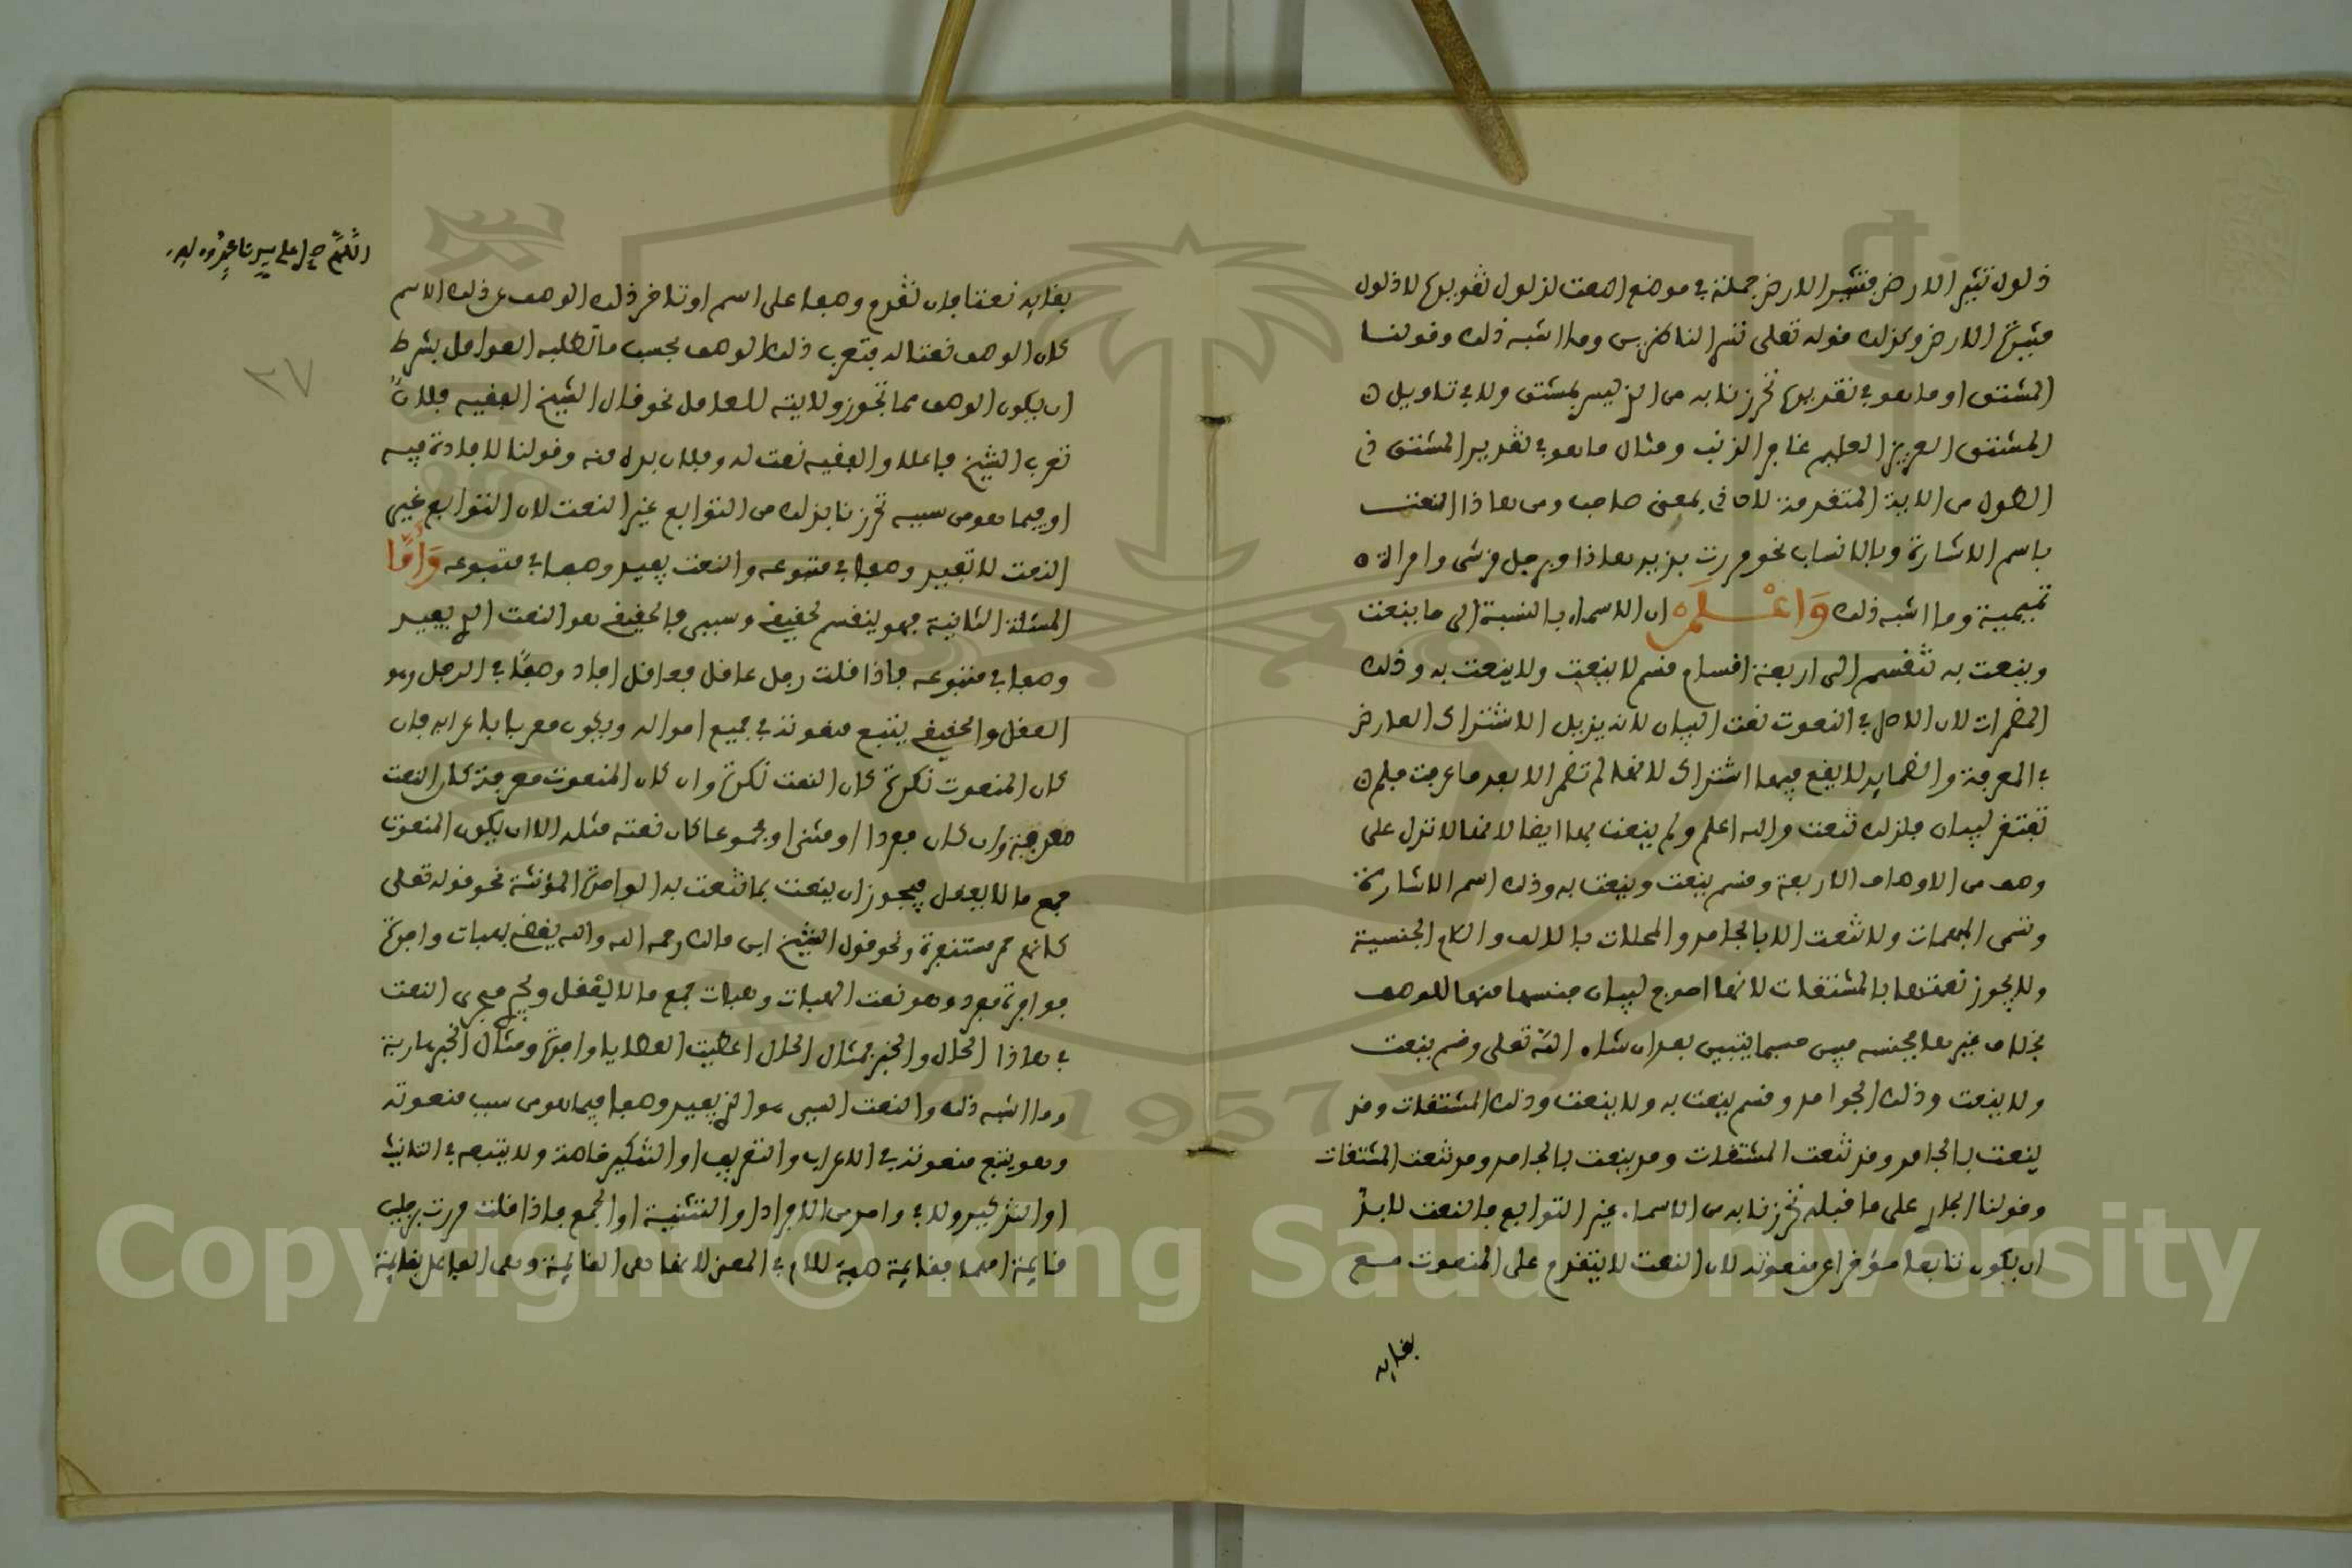 ذلول تثير الارض فتثير الارض جملة في موضع الصفة لذلول تقديرها لا ذلول
مثيرة الارض وكذلك قوله تعلى تسر الناظرين وما اشبه ذلك وقولنا
المشتق او ما هو في تقديره تحرزنا به من الذي ليس بمشتق ولا في تاويل
المشتق العزيز العليم غافر الذنب ومثال ما هو في تقدير المشتق ذي
الطول من الاية المتقدمة لان ذي بمعنى صاحب ومن هاذا النعت
باسم الاشارة وبالانساب نحو مررت بزيد هاذا وبرجل قرشي وامراة
تميمية وما اشبه ذلك وَاعْلَمْ ان الاسماء بالنسبة الى ما ينعت
وينعت به تنقسم الى اربعة اقسام قسم لا ينعت ولا ينعت به وذلك
المضمرات لان الاصل في النعوت نعت البيان لانه يزيل الاشتراك العارض
في المعرفة والضماير لا يقع فيها اشتراك لانها لم تضمر الا بعد ما عرفت فلم
تفتقر لبيان فلذلك تنعت والله اعلم ولم ينعت بها ايضا لانها لا تدل على
وصف من الاوصاف الاربعة وقسم ينعت وينعت به وذلك اسم الاشارة
وتسمى المبهمات ولا تنعت الا بالجامد والمحلات بالالف والام الجنسية
ولا يجوز نعتها بالمشتقات لانها احوج لبيان جنسها منها للوصف
بخلاف غيرها فجنسه مبين حسبما يتبين بعد ان شاء الله تعلى وقسم ينعت
ولا ينعت وذلك الجوامد وقسم ينعت به ولا ينعت وذلك المشتقات وقد
ينعت بالجامد وقد تنعت المشتقات وقد ينعت بالجامد وقد تنعت المشتقات
وقولنا الجار على ما قبله تحرزنا به من الاسماء غير التوابع فالنعت لا بد
ان يكون تابعا مؤخرا عن منعوته لان النعت لا يتقدم على المنعوت مع
بقايه
اللهم صل على سيدنا محمد وءاله
٢٧
بقايه نعتا فان تقدم وصف على اسم او تاخر ذلك الوصف عن ذلك الاسم
كان الوصف نعتا له فتعرب ذلك الوصف بحسب ما تطلبه العوامل بشرط
ان يكون الوصف مما تجوز ولايته للعامل نحو قال الشيخ الفقيه فلان
تعرب الشيخ فاعلا والفقيه نعت له وفلان بدلا منه وقولنا لافادة فيه
او فيما هو من سببه تحرزنا بذلك من التوابع غير النعت لان التوابع غير
النعت لا تفيد وصفا في متبوعه والنعت يفيد وصفا في متبوعه وَأمَّا
المسئلة الثانية فهو ينقسم لحقيقي وسببي فالحقيقي هو النعت الذي يفيد
وصفا في متبوعه فاذا قلت رجل عاقل فعاقل افاد وصفا في الرجل وهو
العقل والحقيقي يتبع منعوته في جميع احواله ويكون معربا باعرابه فان
كان المنعوت نكرة كان النعت نكرة وان كان المنعوت معرفة كان النعت
معرفة وان كان مفردا او مثنى او مجموعا كان نعته مثله الا ان يكون المنعوت
جمع ما لا يعقل فيجوز ان ينعت بما تنعت به الواحدة المؤنثة نحو قوله تعلى
كانهم حمر مستنفرة ونحو قول الشيخ ابن مالك رحمه الله والله يقضي بهبات وافرة
فوافرة مفرد وهو نعت الهبات وهبات جمع ما لا يعقل ويجري مجرى النعت
في هاذا الحال والخبر فمثال الحال اعطيت العطايا وافرة ومثال الخبر
وما اشبه ذلك والنعت السببي هو الذي يفيد وصفا فيما هو من سبب منعوته
وهو يتبع منعوته في الاعراب والتعريف او التنكير خاصة ولا يتبعه في التانيث
او التذكير ولا في واحد من الافراد او التثنية او الجمع فاذا قلت مررت برجلين
قايمة امهما فقايمة صفة للام في المعنى لانها هي القايمة وهي الفاعل بقايمة